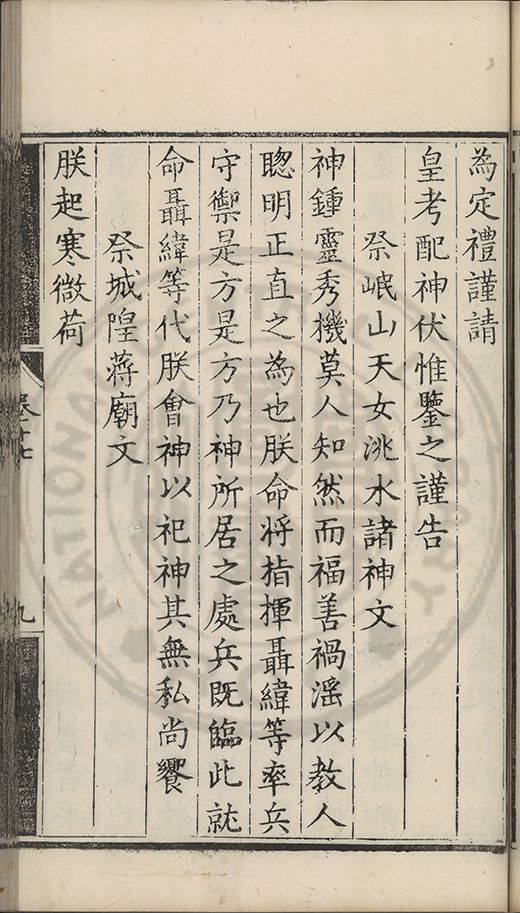 為定禮謹請
皇考配神伏惟鑒之謹告
祭岷山天女洮水諸神文
神鍾靈秀機莫人知然而福善禍滛以教人
聦明正直之為也朕命将指揮聶緯等率兵
守禦是方是方乃神所居之處兵既臨此就
命聶緯等代朕㑹神以祀神其無私尚饗
祭城隍蒋廟文
朕起寒微荷
卷二十七
九